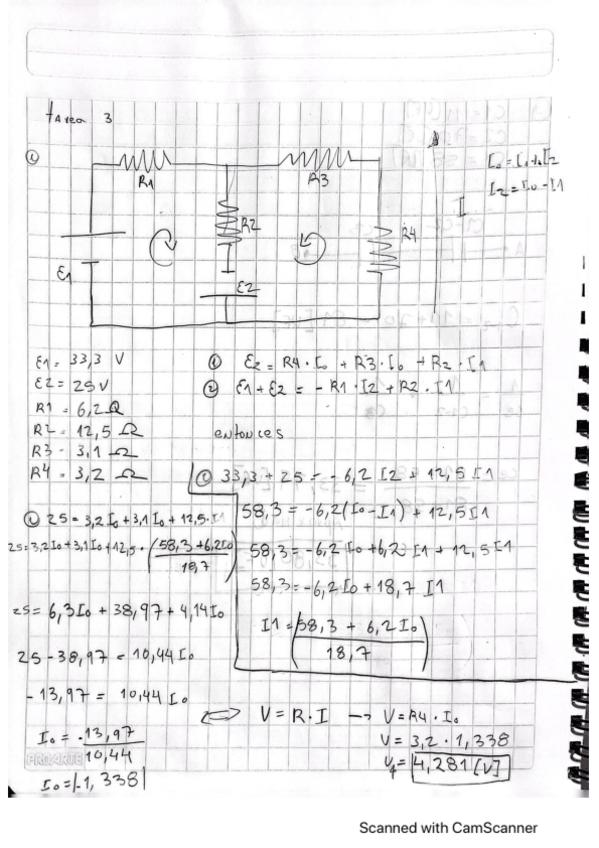 tArea 3
①
R1
R3
I₀ = I1 + I2
I2 = I₀ - I1
R2
I
R4
ε1
ε2
ε1 = 33,3 V
ε2 = 25 V
R1 = 6,2 Ω
R2 = 12,5 Ω
R3 - 3,1 Ω
R4 = 3,2 Ω
① ε2 = R4 · I₀ + R3 · I₀ + R2 · I1
② ε1 + ε2 = - R1 · I2 + R2 · I1
entonces
① 33,3 + 25 = - 6,2 I2 + 12,5 I1
58,3 = -6,2 (I₀ - I1) + 12,5 I1
58,3 = -6,2 I₀ + 6,2 I1 + 12,5 I1
58,3 = -6,2 I₀ + 18,7 I1
I1 = (58,3 + 6,2 I₀)
18,7
① 25 = 3,2 I₀ + 3,1 I₀ + 12,5 · I1
25 = 3,2 I₀ + 3,1 I₀ + 12,5 · (58,3 + 6,2 I₀)
18,7
25 = 6,3 I₀ + 38,97 + 4,14 I₀
25 - 38,97 = 10,44 I₀
- 13,97 = 10,44 I₀
I₀ = -13,97
10,44
I₀ = |-1,338|
PROARTE
⇔ V = R · I → V = R4 · I₀
V = 3,2 · 1,338
V₄ = 4,281 [V]
Scanned with CamScanner